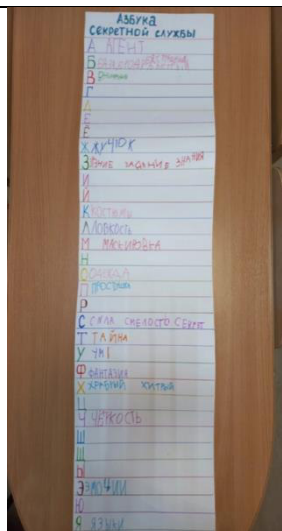 АЗБУКА
СЕКРЕТНОЙ СЛУЖБЫ
А АГЕНТ
Б
В
Г
Д
Е
Ё
Ж ЖУЧОК
З
И
Й
К КОСТЮМЫ
Л ЛОВКОСТЬ
М МАСКИРОВКА
Н
О ОДЕЖДА
П ПРОСЛУШКА
Р
С СИЛА СМЕЛОСТЬ СЕКРЕТ
Т ТАЙНА
У УМ
Ф ФАНТАЗИЯ
Х ХРАБРЫЙ ХИТРЫЙ
Ц
Ч ЧЁТКОСТЬ
Ш
Щ
Ы
Э ЭМОЦИИ
Ю
Я ЯЗЫКИ